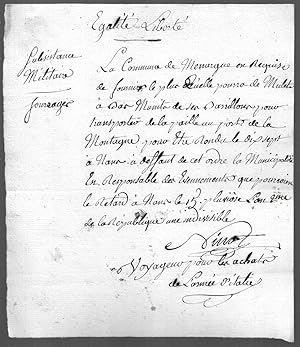 Egalité Liberté
Subsistance
Militaire
fourrages
La Commune de Menargue est Requise
de fournir le plus quelle pourra de Mulets
à Bas Munits de ses pour
transporter de la paille au porte de la
Montagne pour Etre Rendu le dix sept
à Nans, à deffaut de cet ordre la Municipalité
En Responsable des Evenements que pourroient
le Retard à Nans le 15 pluviose L'an 2me
de la Republique une indivisible
Voyageur pour les achats
de L'armée d'italie